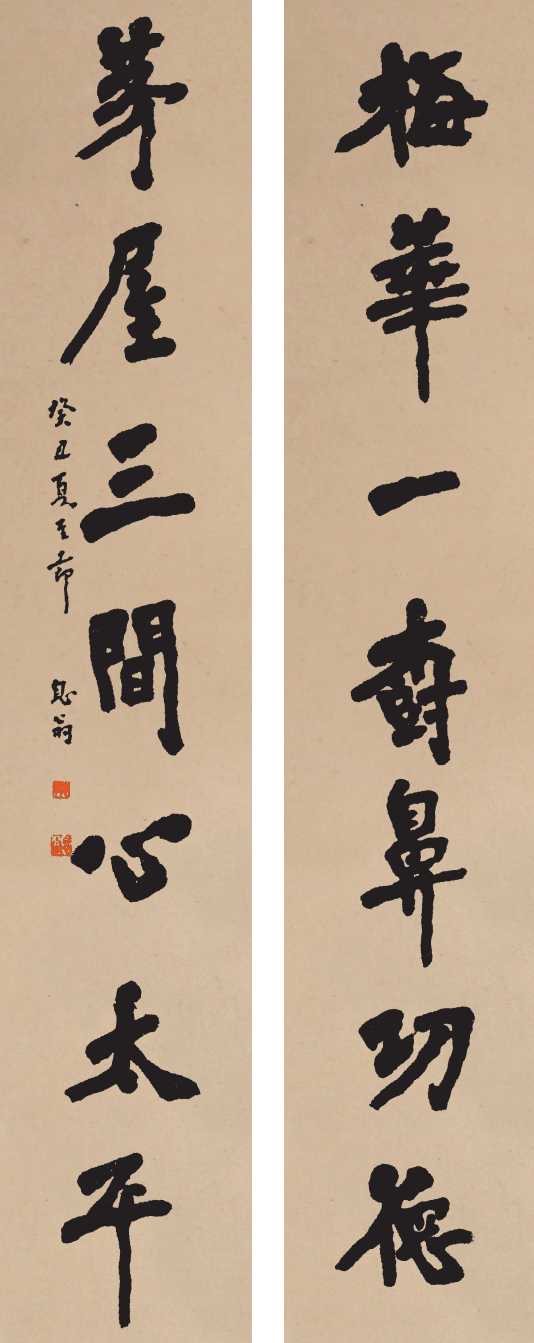 梅華一尌鼻功德
茅屋三間心太平
癸丑夏至節
息翁